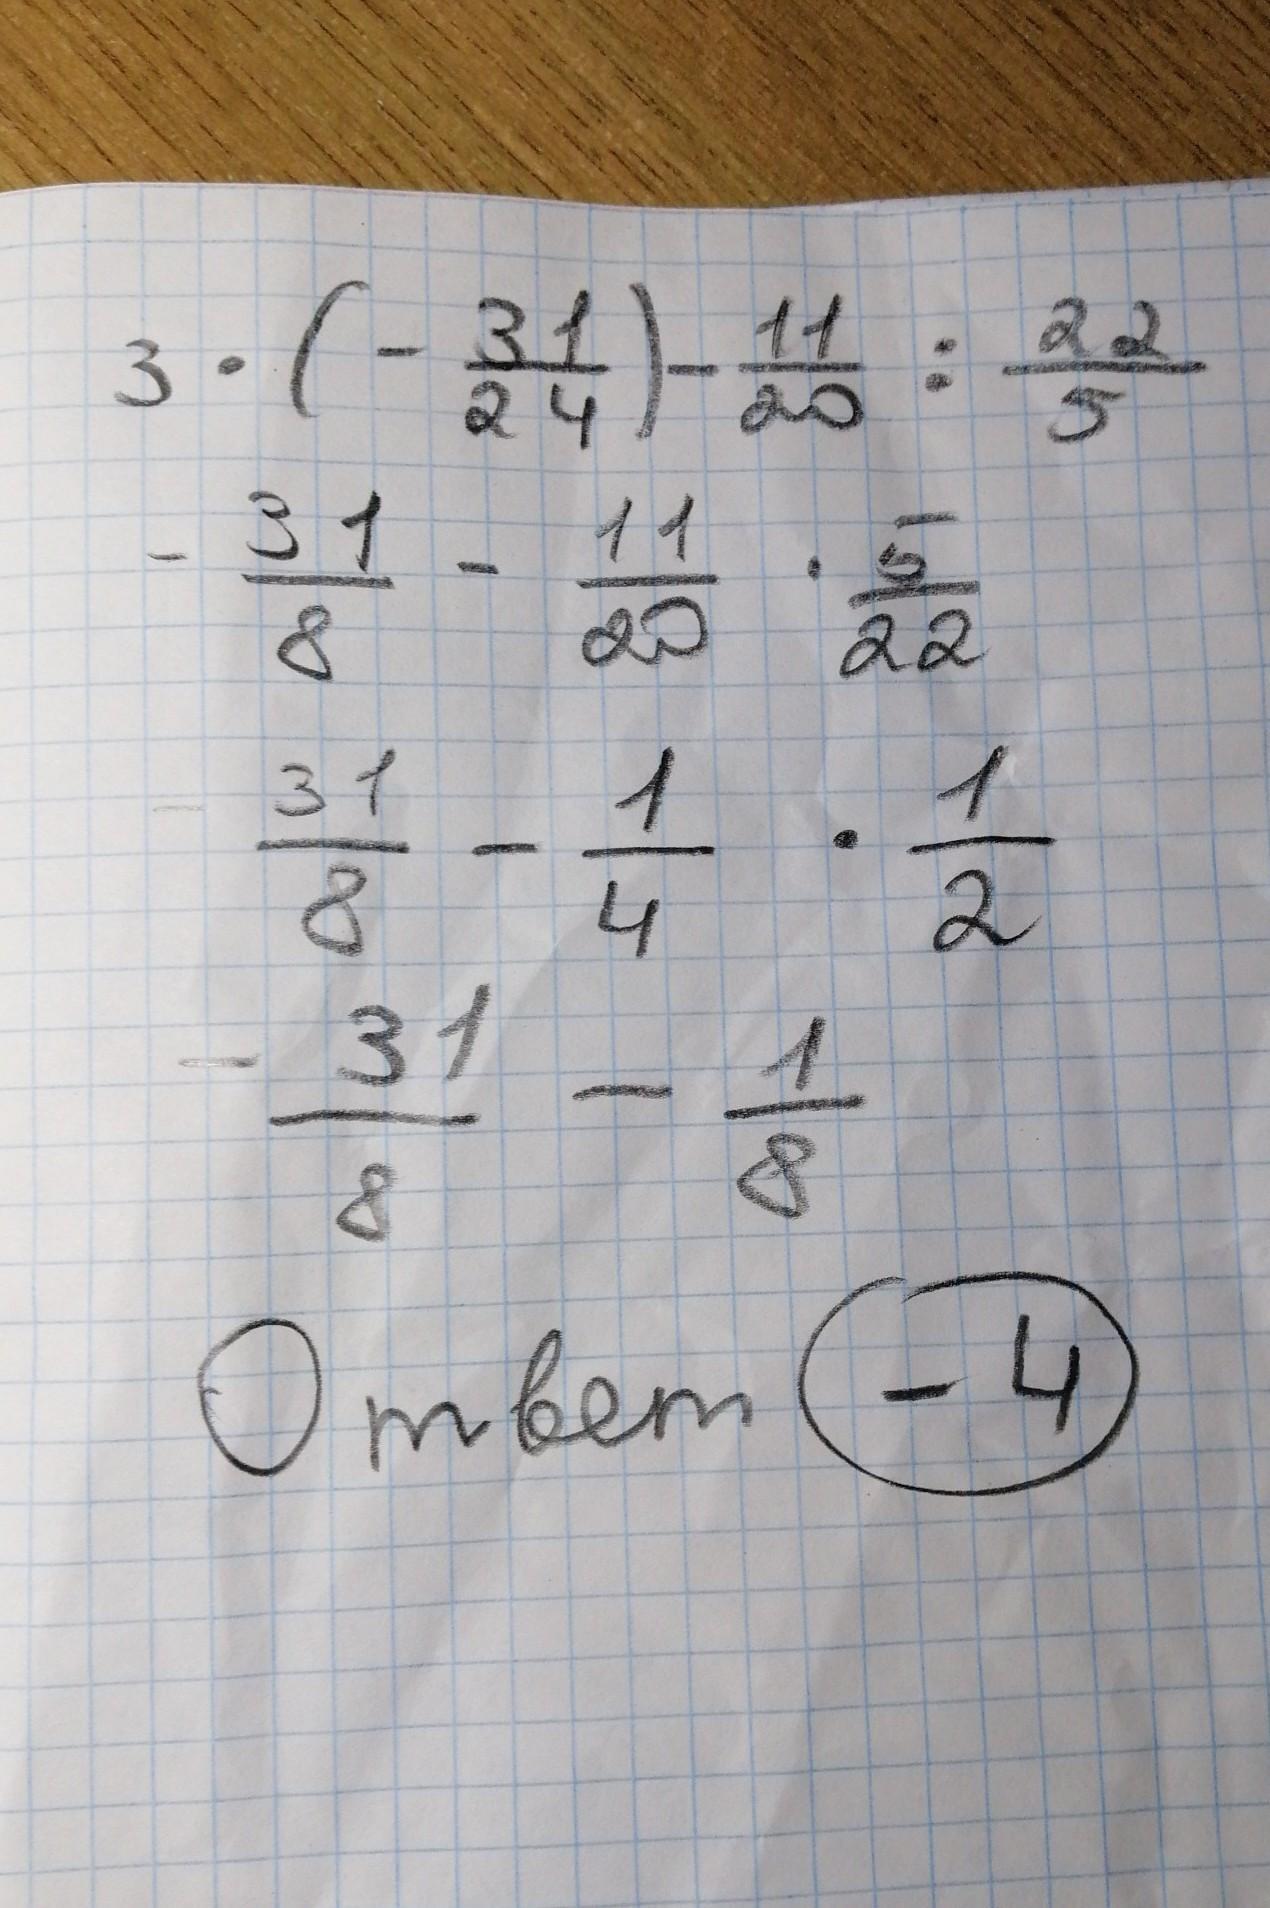 3 · (- 31/24) - 11/20 : 22/5
- 31/8 - 11/20 · 5/22
- 31/8 - 1/4 · 1/2
- 31/8 - 1/8
Ответ -4